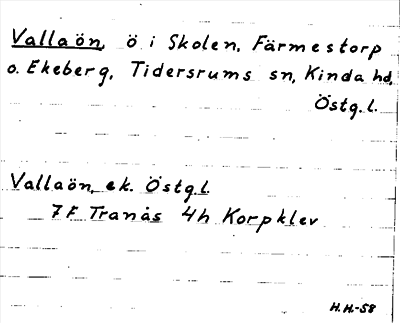 Vallaön, ö i Skolen, Färmestorp
o. Ekeberg, Tidersrums sn, Kinda hd,
Östg.l.
Vallaön, ek. Östg.l.
7F Tranås 4h Korpklev
H.H.-58